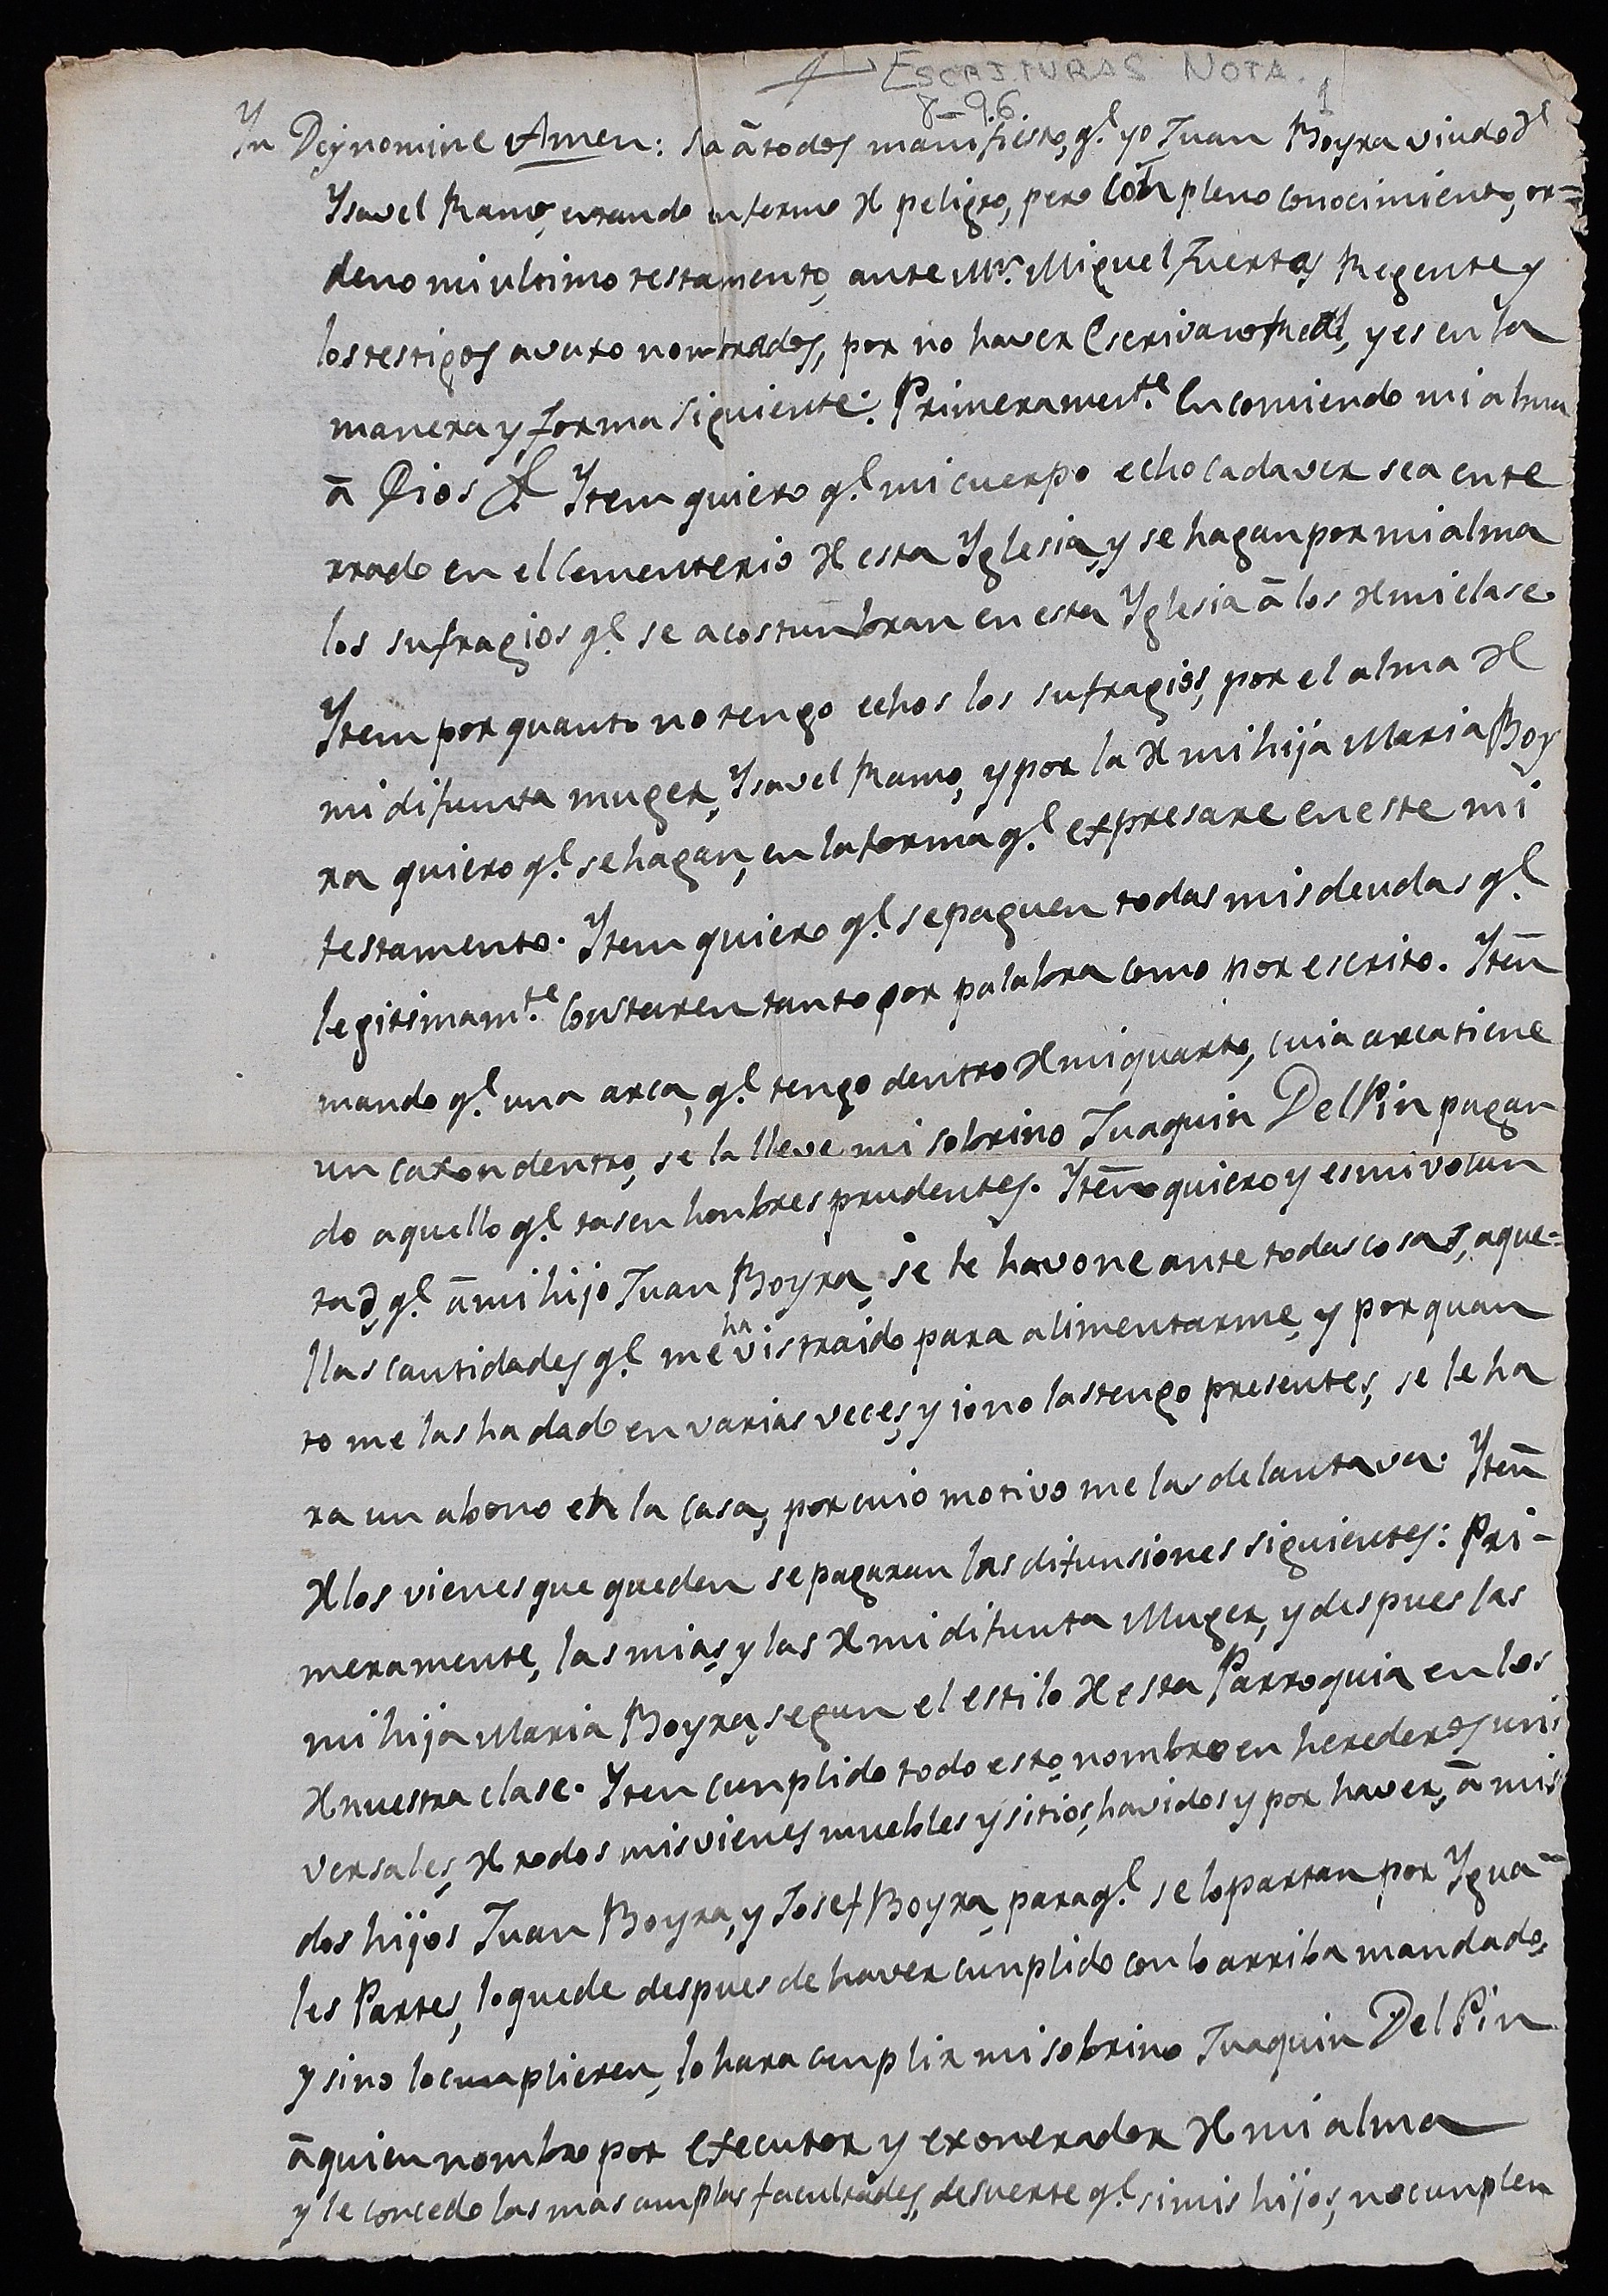 ESCRITURAS NOTA.
8-96 1
Yn Deynomine Amen: Sa â todos manifiesto, q.l yo Juan Boyra viudo dl
Ysavel Ramo, estando enfermo dl peligro, pero con pleno conocimiento, or=
deno mi ultimo testamento, ante Mn. Miguel Fuertes Regente y
los testigos avaxo nombrados, por no haver Escrivano Real, y es en la
manera y forma siguiente: Primeramen.te Encomiendo mi alma
â Dios &. Ytem quiero q.l mi cuerpo echo cadaver sea ente
rrado en el Cementerio dl esta Yglesia, y se hagan por mi alma
los sufragios q.l se acostunbran en esta Yglesia â los dl mi clase.
Ytem por quanto no tengo echos los sufragios, por el alma dl
mi difunta muger, Ysavel Ramo, y por la dl mi hija Maria Boy
ra quiero q.l se hagan, en la forma q.l expresare en este mi
testamento. Ytem quiero q.l se paguen todas mis deudas q.l
legitimam.te Constaren tanto por palabra como por escrito. Yten̄
mando q.l una arca, q.l tengo dentro dl mi quarto, cuia arca tiene
un caxon dentro, se la lleve mi sobrino Juaquin Del Pin pagan
do aquello q.l tasen honbres prudentes. Yten̄ quiero y es mi volun
tad, q.l â mi hijo Juan Boyra, se le havone ante todas cosas, aque=
llas cantidades q.l me ha vistraido para alimentarme, y por quan
to me las ha dado en varias veces, y io no las tengo presentes, se le ha
ra un abono en la casa, por cuio motivo me las delantava. Yten̄
dl los vienes que queden se pagaran las difunsiones siguientes: Pri-
meramente, las mias y las dl mi difunta Muger, y despues las
mi hija Maria Boyra, segun el estilo dl esta Parroquia en los
dl nuestra clase. Yten cunplido todo esto, nombro en herederos uni
versales, dl todos mis vienes muebles y sitios, havidos y por haver, â mis
dos hijos Juan Boyra, y Josef Boyra, para q.l se lo partan por Ygua-
les Partes, lo quede despues de haver cunplido con lo arriba mandado,
y sino lo cumplieren, lo hara cunplir mi sobrino Juaquin Del Pin
â quien nombro por Executor y exonerador dl mi alma
y le concedo las mas amplas facultades, desuerte q.l si mis hijos, no cunplen